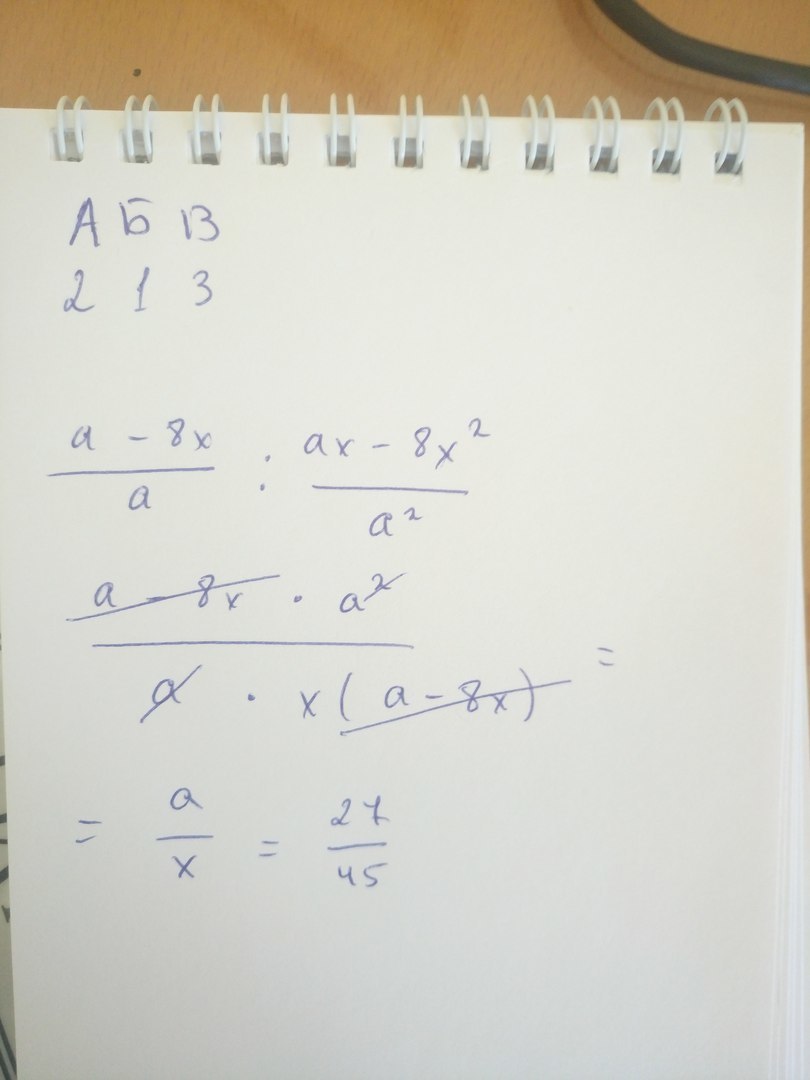 А Б В
2 1 3
a - 8x : ax - 8x²
a a²
a - 8x · a²
a · x ( a - 8x ) =
= a = 27
x 45